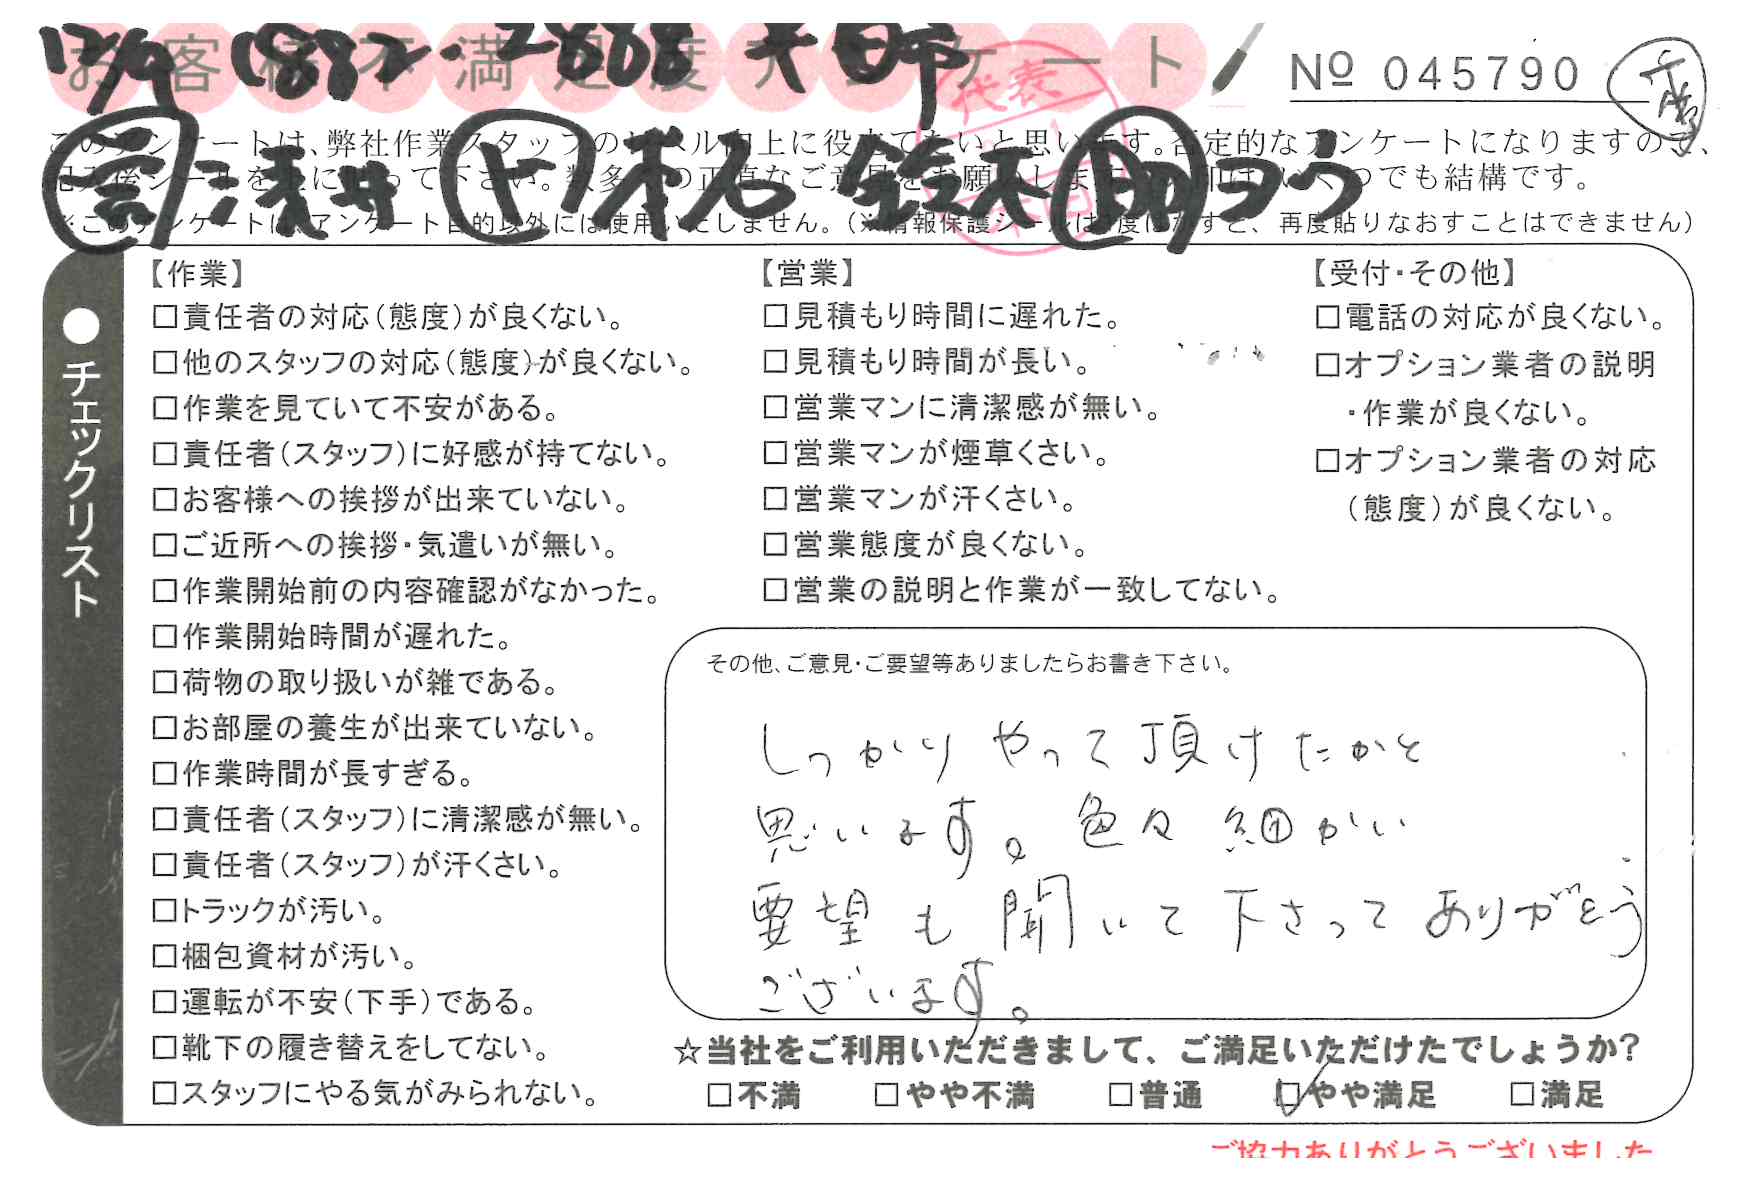 お客様不満足度アンケート
12/9 1882-2808
Nº 045790
このアンケートは、弊社作業スタッフのレベル向上に役立てたいと思います。否定的なアンケートになりますので、
記入後シールを上に貼って下さい。数多くの正直なご意見をお願いします。
営 浅井 鈴木
※このアンケートは、アンケート目的以外には使用いたしません。(※情報保護シールは1度はがすと、再度貼りなおすことはできません)
代表
●チェックリスト
【作業】
□責任者の対応(態度)が良くない。
□他のスタッフの対応(態度)が良くない。
□作業を見ていて不安がある。
□責任者(スタッフ)に好感が持てない。
□お客様への挨拶が出来ていない。
□ご近所への挨拶・気遣いが無い。
□作業開始前の内容確認がなかった。
□作業開始時間が遅れた。
□荷物の取り扱いが雑である。
□お部屋の養生が出来ていない。
□作業時間が長すぎる。
□責任者(スタッフ)に清潔感が無い。
□責任者(スタッフ)が汗くさい。
□トラックが汚い。
□梱包資材が汚い。
□運転が不安(下手)である。
□靴下の履き替えをしてない。
□スタッフにやる気がみられない。
【営業】
□見積もり時間に遅れた。
□見積もり時間が長い。
□営業マンに清潔感が無い。
□営業マンが煙草くさい。
□営業マンが汗くさい。
□営業態度が良くない。
□営業の説明と作業が一致してない。
【受付・その他】
□電話の対応が良くない。
□オプション業者の説明
・作業が良くない。
□オプション業者の対応
(態度)が良くない。
その他、ご意見・ご要望等ありましたらお書き下さい。
しっかりやって頂けたかと
思います。色々細かい
要望も聞いて下さってありがとう
ございます。
☆当社をご利用いただきまして、ご満足いただけたでしょうか?
□不満 □やや不満 □普通 ☑やや満足 □満足
ご協力ありがとうございました